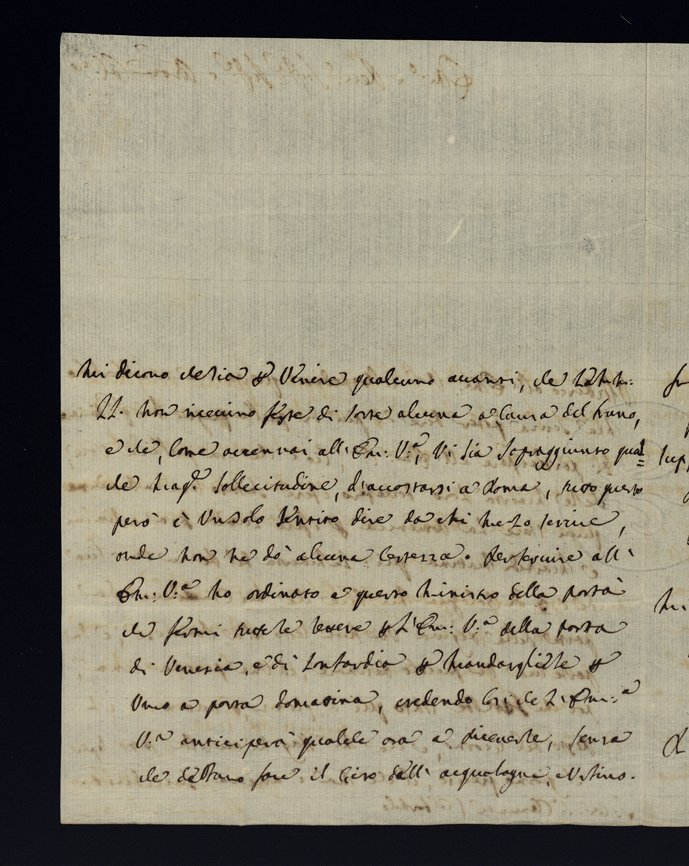 mi dicono che sia p Venire qualcuno avanti, che
LL. non ricevino feste di sorte alcuna a causa del
e che, come accennai all'Em: V.ª, Vi sia sopraggiunto qual=
che mag.r sollecitudine, d'accostarsi a Roma, tutto questo
però è Un solo sentito dire da chi me lo scrive,
onde non ne dò alcuna certezza. Per servire all'
Em: V.ª ho ordinato a questo Ministro della posta
che fermi tutte le lettere p L'Em: V.ª della posta
di Venezia, e di Lombardia p mandargliele p
Uno a posta domatina, credendo così che L'Em:ª
V.ª anticiperà qualche ora a riceverle, senza
che debbano fare il Giro dell'acqualagna, e Urbino.